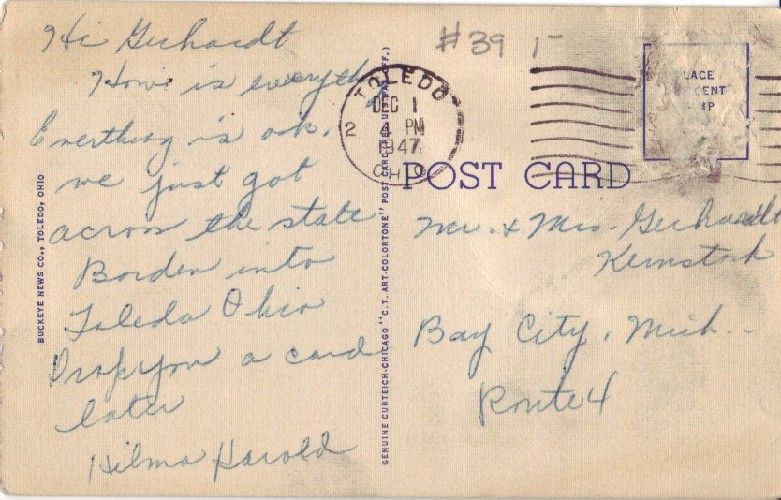 Hi Gerhardt
How is everything
Everything is ok.
we just got
across the state
Borden into
Toledo Ohio
Drop you a card
later
Hilma Harold
BUCKEYE NEWS CO., TOLEDO, OHIO
GENUINE CURTEICH-CHICAGO "C.T. ART-COLORTONE" POST CARD (REG. U.S. PAT. OFF.)
#39 1-
TOLEDO
DEC 1
2 4 PM
1947
OHIO
PLACE
CENT
POST CARD
Mr. & Mrs. Gerhardt
Bay City, Mich-
Route 4